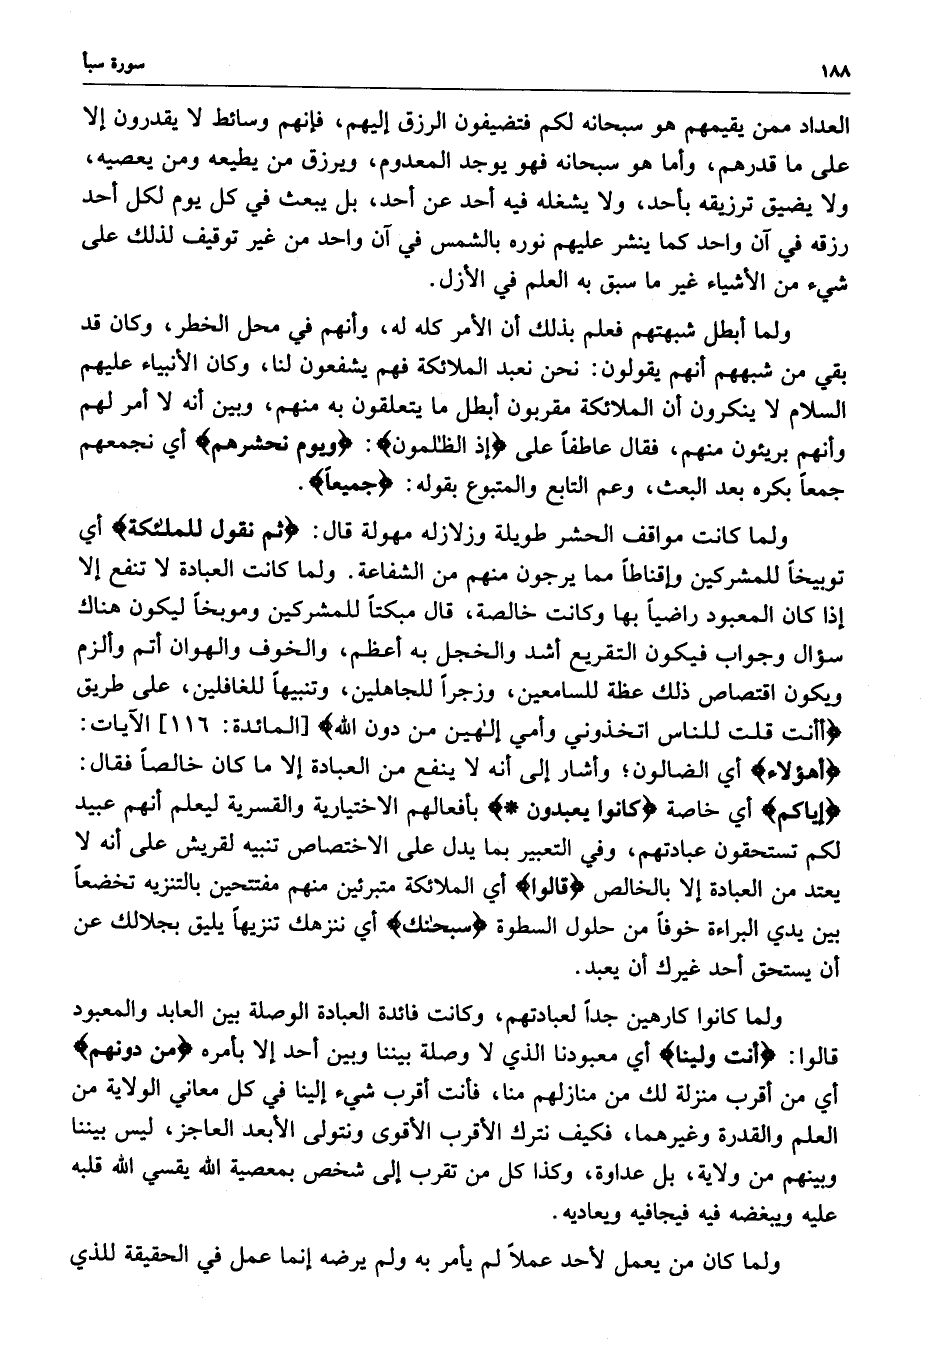 ١٨٨ سورة سبأ
العداد ممن يقيمهم هو سبحانه لكم فتضيفون الرزق إليهم، فإنهم وسائط لا يقدرون إلا
على ما قدرهم، وأما هو سبحانه فهو يوجد المعدوم، ويرزق من يطيعه ومن يعصيه،
ولا يضيق ترزيقه بأحد، ولا يشغله فيه أحد عن أحد، بل يبعث في كل يوم لكل أحد
رزقه في آن واحد كما ينشر عليهم نوره بالشمس في آن واحد من غير توقيف لذلك على
شيء من الأشياء غير ما سبق به العلم في الأزل.
ولما أبطل شبهتهم فعلم بذلك أن الأمر كله له، وأنهم في محل الخطر، وكان قد
بقي من شبههم أنهم يقولون: نحن نعبد الملائكة فهم يشفعون لنا، وكان الأنبياء عليهم
السلام لا ينكرون أن الملائكة مقربون أبطل ما يتعلقون به منهم، وبين أنه لا أمر لهم
وأنهم بريئون منهم، فقال عاطفاً على ﴿إذ الظٰلمون﴾: ﴿ويوم نحشرهم﴾ أي نجمعهم
جمعاً بكره بعد البعث، وعم التابع والمتبوع بقوله: ﴿جميعاً﴾.
ولما كانت مواقف الحشر طويلة وزلازله مهولة قال: ﴿ثم نقول للملٰئكة﴾ أي
توبيخاً للمشركين وإقناطاً مما يرجون منهم من الشفاعة. ولما كانت العبادة لا تنفع إلا
إذا كان المعبود راضياً بها وكانت خالصة، قال مبكتاً للمشركين وموبخاً ليكون هناك
سؤال وجواب فيكون التقريع أشد والخجل به أعظم، والخوف والهوان أتم وألزم
ويكون اقتصاص ذلك عظة للسامعين، وزجراً للجاهلين، وتنبيهاً للغافلين، على طريق
﴿أأنت قلت للناس اتخذوني وأمي إلٰهين من دون الله﴾ [المائدة: ١١٦] الآيات:
﴿أهؤلاء﴾ أي الضالون؛ وأشار إلى أنه لا ينفع من العبادة إلا ما كان خالصاً فقال:
﴿إياكم﴾ أي خاصة ﴿كانوا يعبدون *﴾ بأفعالهم الاختيارية والقسرية ليعلم أنهم عبيد
لكم تستحقون عبادتهم، وفي التعبير بما يدل على الاختصاص تنبيه لقريش على أنه لا
يعتد من العبادة إلا بالخالص ﴿قالوا﴾ أي الملائكة متبرئين منهم مفتتحين بالتنزيه تخضعاً
بين يدي البراءة خوفاً من حلول السطوة ﴿سبحٰنك﴾ أي ننزهك تنزيهاً يليق بجلالك عن
أن يستحق أحد غيرك أن يعبد.
ولما كانوا كارهين جداً لعبادتهم، وكانت فائدة العبادة الوصلة بين العابد والمعبود
قالوا: ﴿أنت ولينا﴾ أي معبودنا الذي لا وصلة بيننا وبين أحد إلا بأمره ﴿من دونهم﴾
أي من أقرب منزلة لك من منازلهم منا، فأنت أقرب شيء إلينا في كل معاني الولاية من
العلم والقدرة وغيرهما، فكيف نترك الأقرب الأقوى ونتولى الأبعد العاجز، ليس بيننا
وبينهم من ولاية، بل عداوة، وكذا كل من تقرب إلى شخص بمعصية الله يقسي الله قلبه
عليه ويبغضه فيه فيجافيه ويعاديه.
ولما كان من يعمل لأحد عملاً لم يأمر به ولم يرضه إنما عمل في الحقيقة للذي